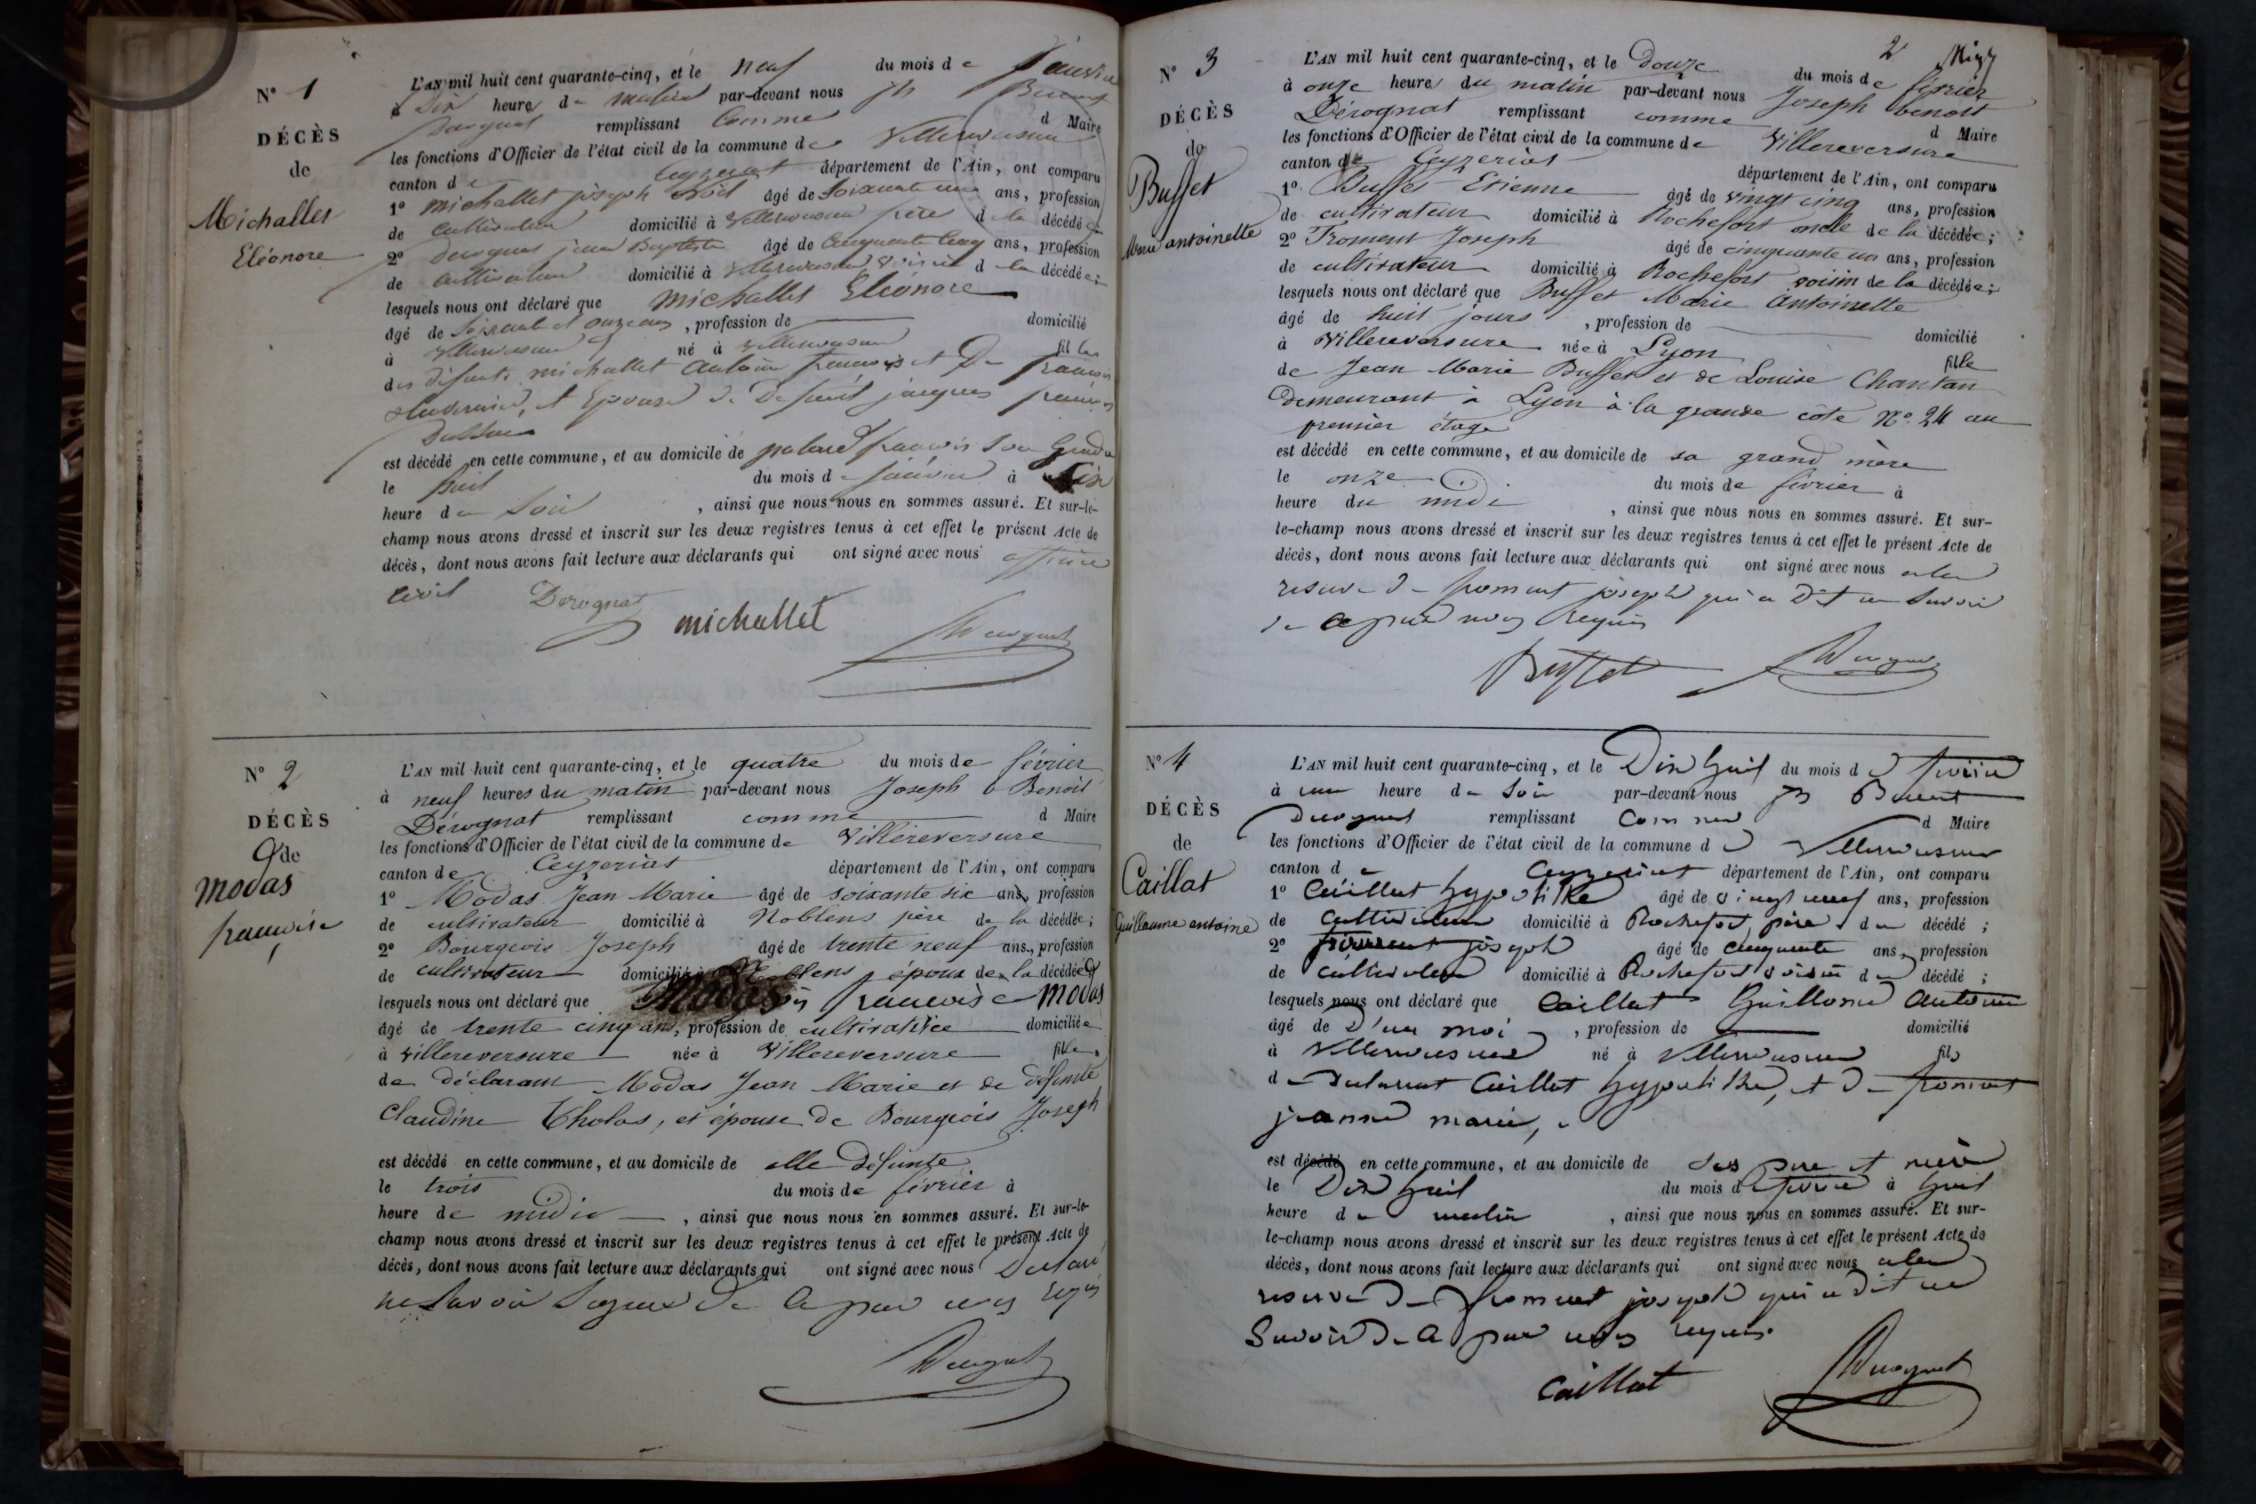 N° 1
DÉCÈS
de
Michallet
Eléonore
L'AN mil huit cent quarante-cinq, et le neuf du mois de Janvier
à Dix heures du matin par-devant nous Jh Benoit
Derognat remplissant comme d Maire
les fonctions d'Officier de l'état civil de la commune de Villereversure
canton de Ceyzeriat département de l'Ain, ont comparu
1° Michallet joseph Noël âgé de soixante ans, profession
de cultivateur domicilié à Villereversure frère de la décédée
2° Derognat jean Baptiste âgé de Cinquante Cinq ans, profession
de cultivateur domicilié à Villereversure voisin de la décédée;
lesquels nous ont déclaré que Michallet Eléonore
âgé de soixante et onze ans, profession de domicilié
à Villereversure né à Villereversure fille
des défunts michallet Antoine françois et De françoise
et Epouse de Defunt jacques françois
est décédé en cette commune, et au domicile de françois son Gendre
le huit du mois de janvier à six
heure du soir, ainsi que nous nous en sommes assuré. Et sur-le-
champ nous avons dressé et inscrit sur les deux registres tenus à cet effet le présent Acte de
décès, dont nous avons fait lecture aux déclarants qui ont signé avec nous officier
civil Derognat michallet Derognat
N° 2
DÉCÈS
de
modas
francoise
L'AN mil huit cent quarante-cinq, et le quatre du mois de février
à neuf heures du matin par-devant nous Joseph Benoit
Dérognat remplissant comme d Maire
les fonctions d'Officier de l'état civil de la commune de Villereversure
canton de Ceyzeriat département de l'Ain, ont comparu
1° Modas Jean Marie âgé de soixante six ans, profession
de cultivateur domicilié à Noblens père de la décédée;
2° Bourgeois Joseph âgé de trente neuf ans, profession
de cultivateur domicilié à Noblens époux de la décédée
lesquels nous ont déclaré que francoise modas
âgé de trente cinq ans, profession de cultivatrice domiciliée
à Villereversure née à Villereversure fille
de déclarant Modas Jean Marie et de défunte
Claudine Tholas, et épouse de Bourgeois Joseph
est décédé en cette commune, et au domicile de elle défunte
le trois du mois de février à
heure de midi, ainsi que nous nous en sommes assuré. Et sur-le-
champ nous avons dressé et inscrit sur les deux registres tenus à cet effet le présent Acte de
décès, dont nous avons fait lecture aux déclarants qui ont signé avec nous
ne savoir signer de ce par nous requis
Derognat
2
N° 3
DÉCÈS
de
Buffet
Marie antoinette
L'AN mil huit cent quarante-cinq, et le douze du mois de février
à onze heures du matin par-devant nous Joseph benoit
Dérognat remplissant comme d Maire
les fonctions d'Officier de l'état civil de la commune de Villereversure
canton de Ceyzeriat département de l'Ain, ont comparu
1° Buffet Etienne âgé de vingt cinq ans, profession
de cultivateur domicilié à Rochefort oncle de la décédée;
2° Froment Joseph âgé de cinquante un ans, profession
de cultivateur domicilié à Rochefort voisin de la décédée;
lesquels nous ont déclaré que Buffet Marie Antoinette
âgé de huit jours, profession de domicilié
à Villereversure née à Lyon fille
de Jean Marie Buffet et de Louise Chantan
demeurant à Lyon à la grande côte N° 24 au
premier étage
est décédé en cette commune, et au domicile de sa grand mère
le onze du mois de février à
heure du midi, ainsi que nous nous en sommes assuré. Et sur-
le-champ nous avons dressé et inscrit sur les deux registres tenus à cet effet le présent Acte de
décès, dont nous avons fait lecture aux déclarants qui ont signé avec nous a la
reserve de froment joseph qui a Dit ne savoir
de ce par nous requis
Buffet Derognat
N° 4
DÉCÈS
de
Caillat
Guillaume antoine
L'AN mil huit cent quarante-cinq, et le Dix huit du mois de février
à une heure du soir par-devant nous Jh Benoit
Derognat remplissant comme d Maire
les fonctions d'Officier de l'état civil de la commune de Villereversure
canton de Ceyzeriat département de l'Ain, ont comparu
1° Caillat hypolithe âgé de vingt neuf ans, profession
de cultivateur domicilié à Rochefort, père du décédé;
2° froment joseph âgé de cinquante ans, profession
de cultivateur domicilié à Rochefort voisin du décédé;
lesquels nous ont déclaré que Caillat Guillaume Antoine
âgé de D'un moi, profession de domicilié
à Villereversure né à Villereversure fils
de declarant Caillat hypolithe, et de froment
jeanne marie,
est décédé en cette commune, et au domicile de ses pere et mère
le Dix huit du mois de février à huit
heure du matin, ainsi que nous nous en sommes assuré. Et sur-
le-champ nous avons dressé et inscrit sur les deux registres tenus à cet effet le présent Acte de
décès, dont nous avons fait lecture aux déclarants qui ont signé avec nous a la
reserve de froment joseph qui a dit ne
Savoir de ce par nous requis.
Caillat Derognat